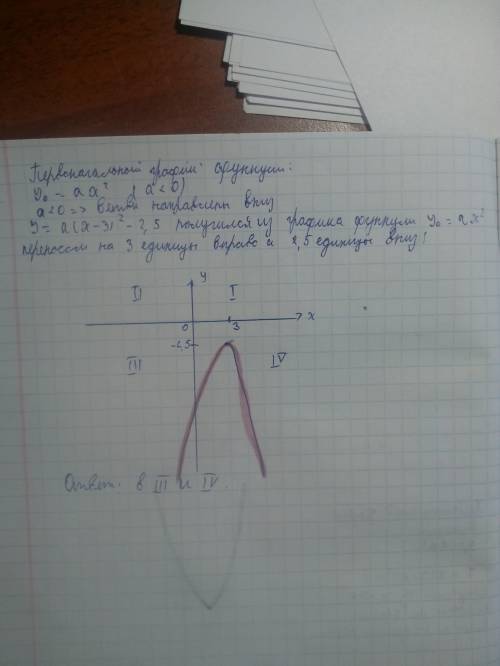 Первоначальный график функции:
y₀ = ax² (a < 0)
a < 0 => ветви направлены вниз
y = a(x-3)² - 2,5 получился из графика функции y₀ = ax²
переносом на 3 единицы вправо и 2,5 единицы вниз!
y
II I
0 3 x
-2,5
III IV
Ответ: в III и IV.